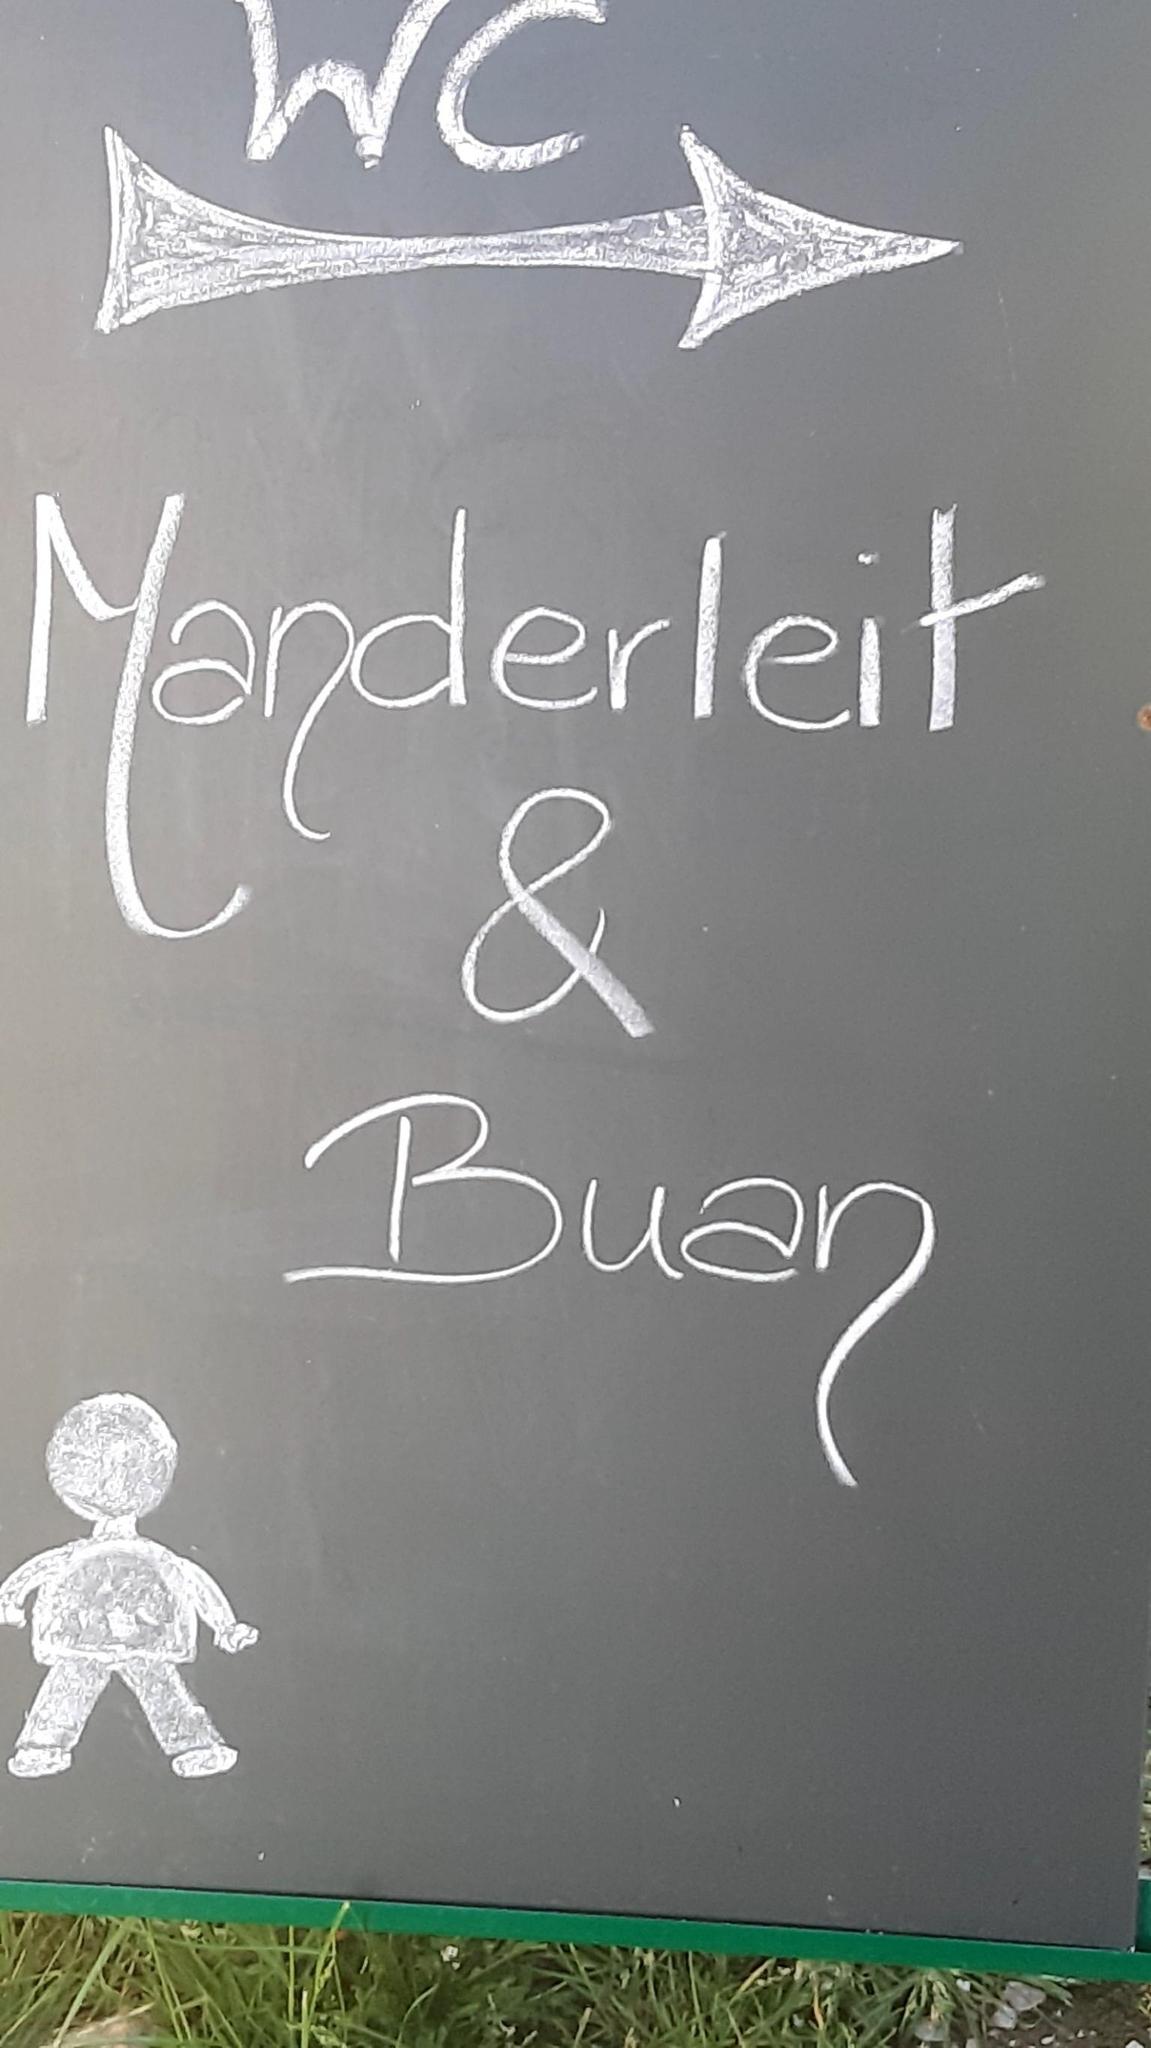 WC
Manderleit
&
Buan